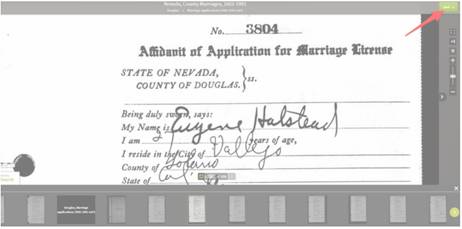 Nevada, County Marriages, 1862-1993
No. 3804
Affidavit of Application for Marriage License
STATE OF NEVADA,
COUNTY OF DOUGLAS. } ss.
Being duly sworn, says:
My Name is Eugene Halstead
I am years of age,
I reside in the City of Vallejo
County of Solano
State of Cal.
Douglas, Marriage